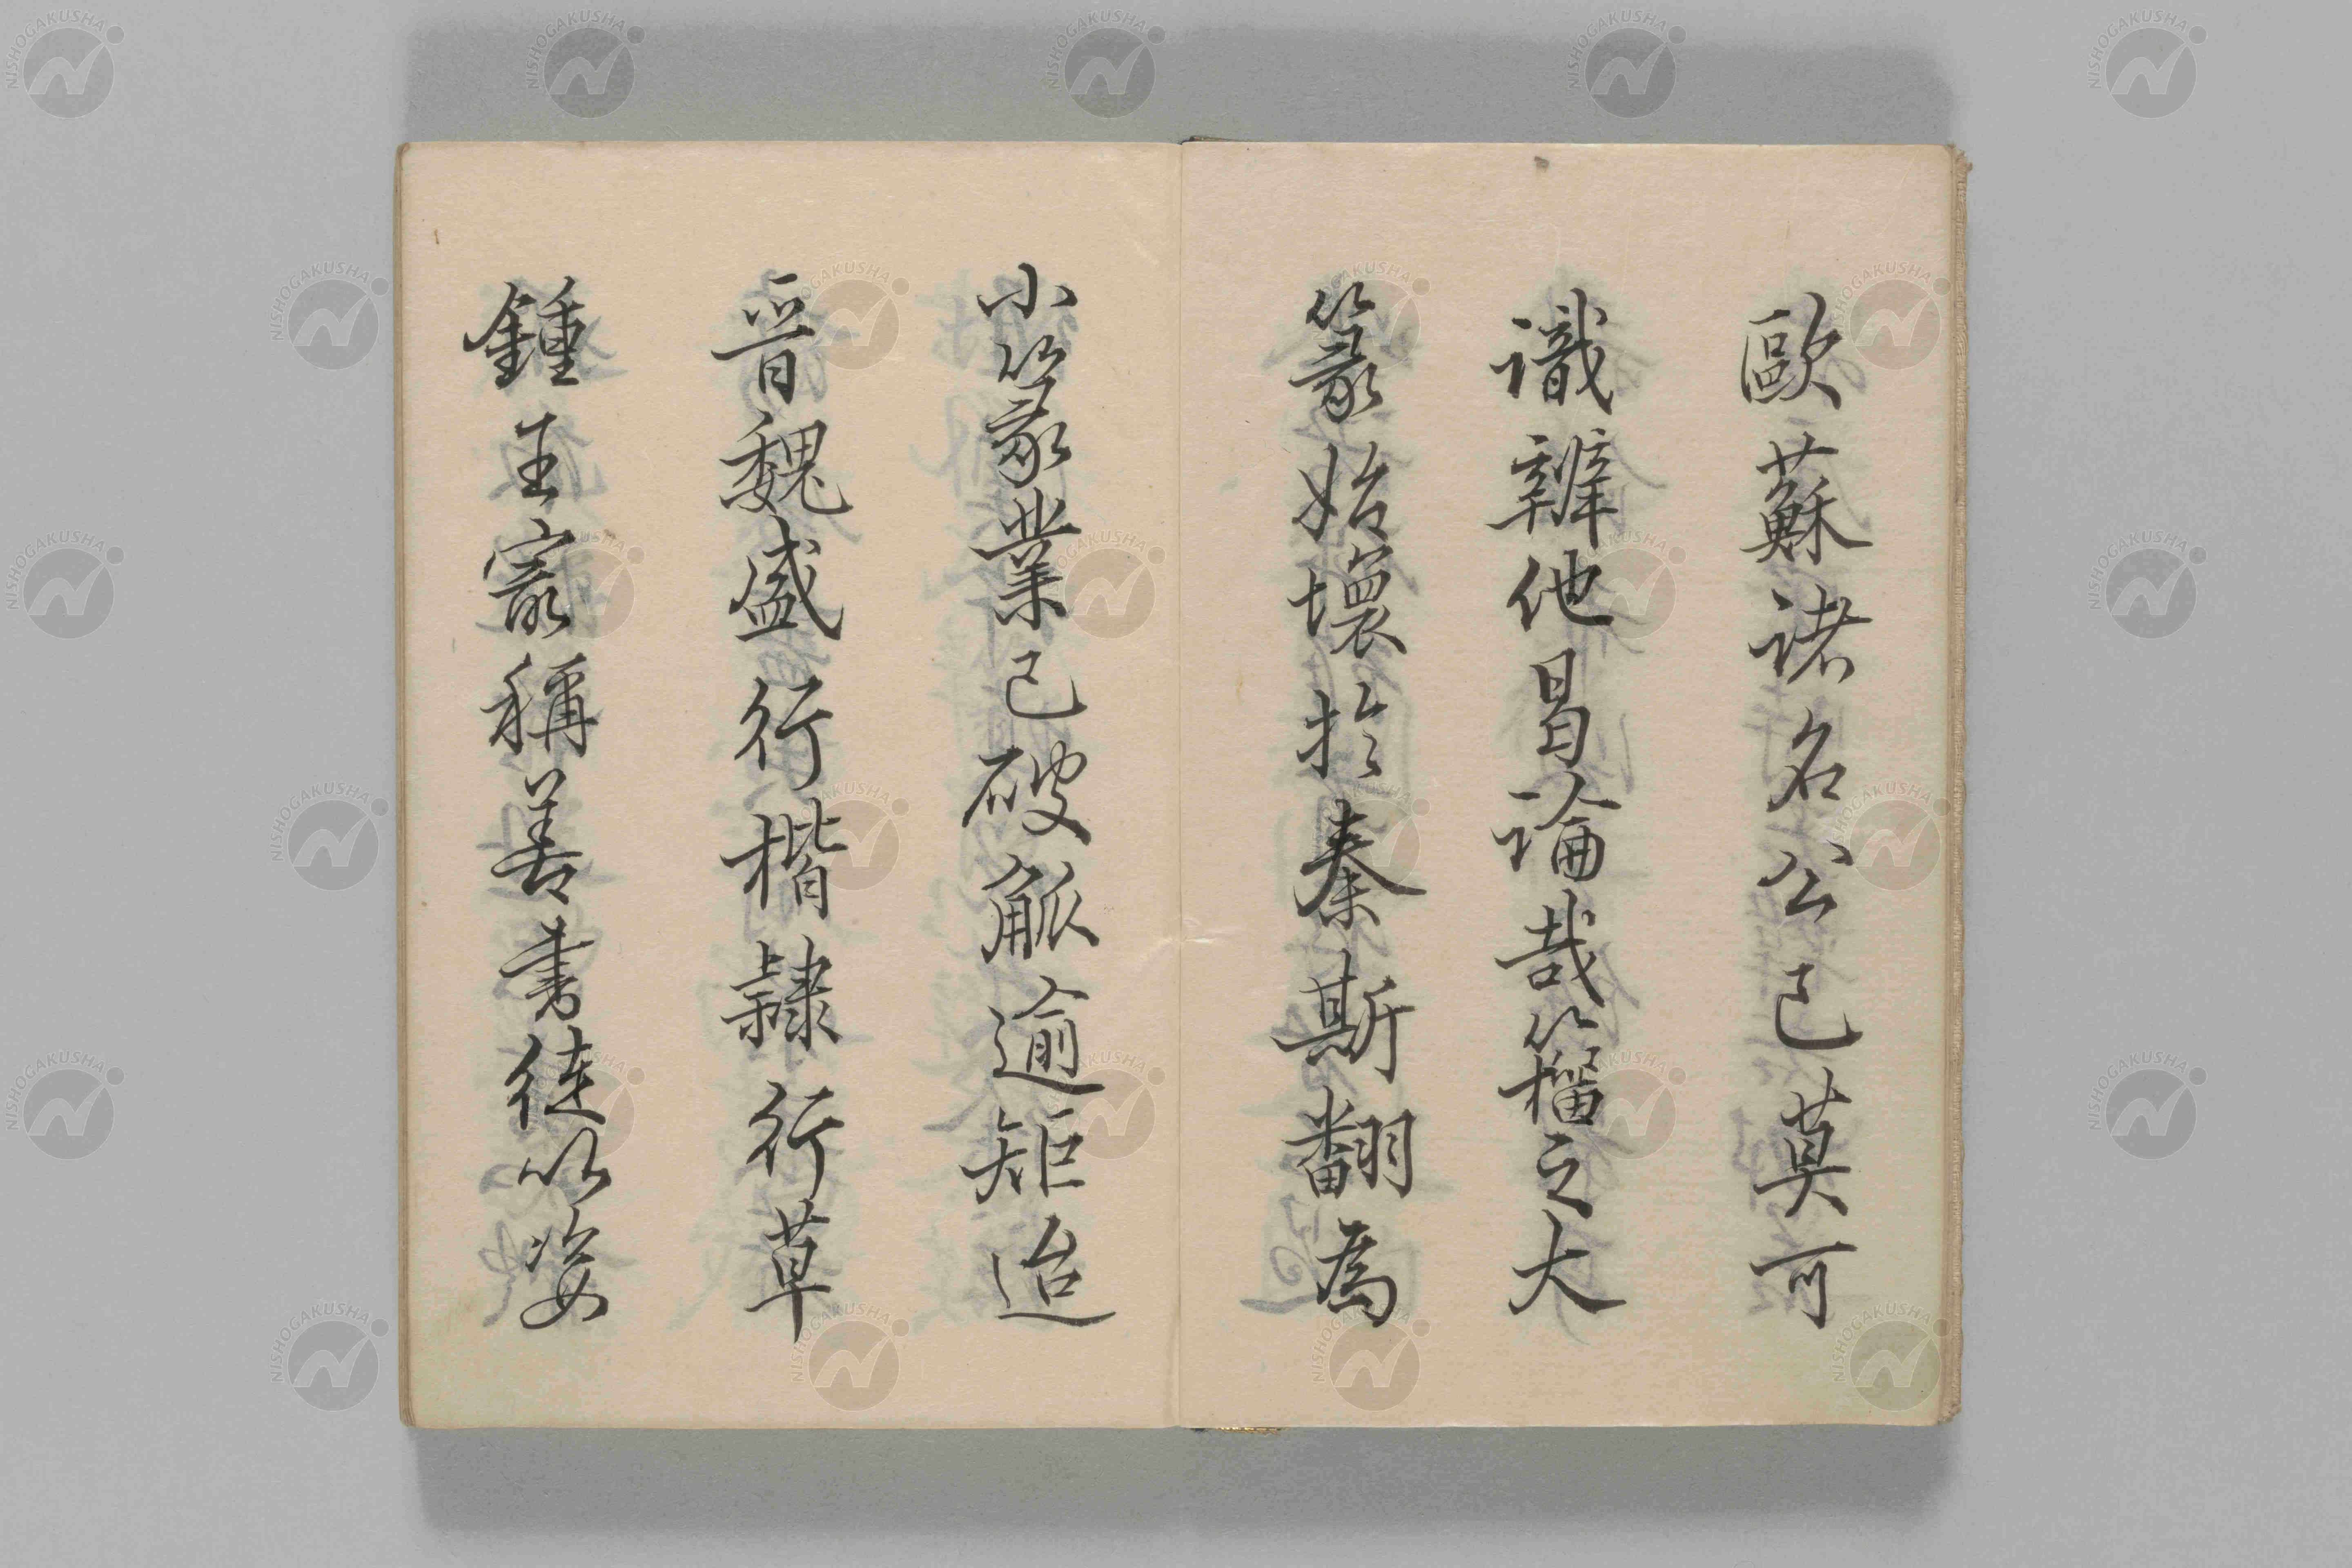 歐蘇諸名公已莫可
識辨他曷論哉籀之大
篆始壞於秦斯翻為
小篆業已破觚逾矩迨
晉魏盛行楷隸行草
鍾王寂稱善書徒以姿